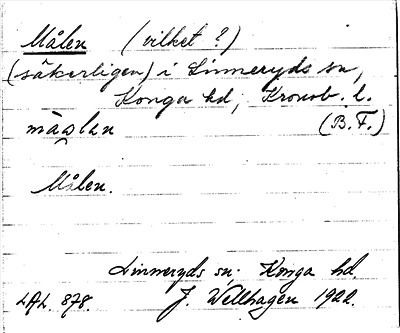 Målen (vilket?)
(säkerligen) i Linneryds sn,
Konga hd, Kronob. l.
måələn (B.F.)
Målen.
Linneryds sn. Konga hd.
LAL. 878. J. Wellhagen 1922.